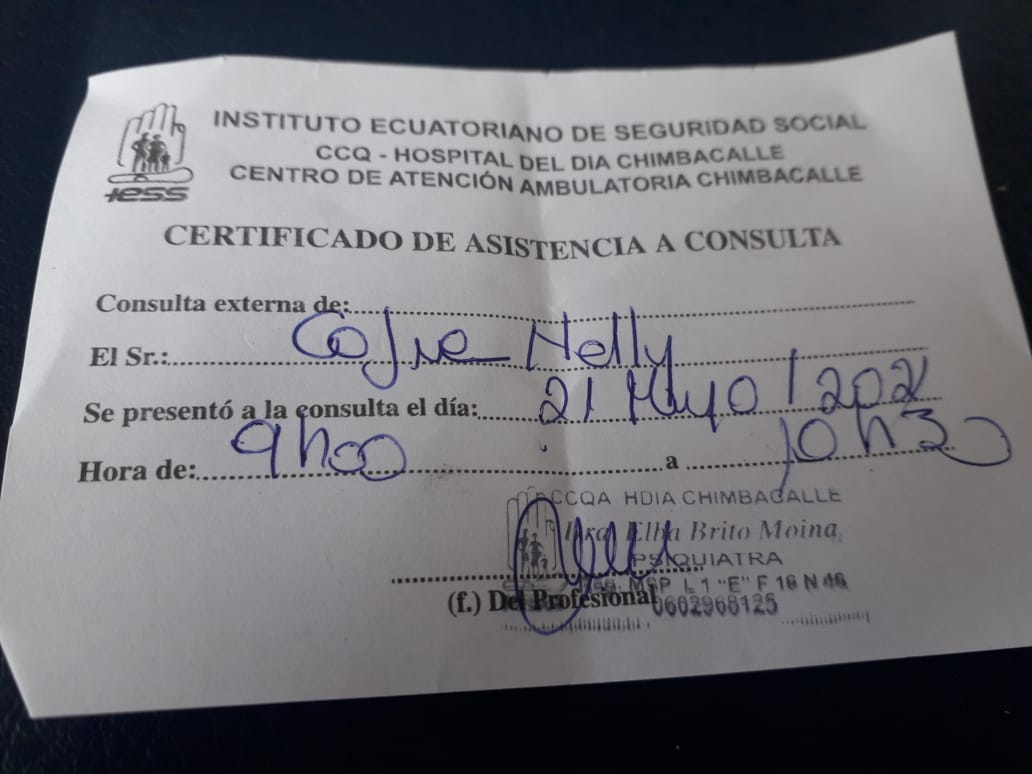 INSTITUTO ECUATORIANO DE SEGURIDAD SOCIAL
CCQ - HOSPITAL DEL DIA CHIMBACALLE
CENTRO DE ATENCIÓN AMBULATORIA CHIMBACALLE
IESS
CERTIFICADO DE ASISTENCIA A CONSULTA
Consulta externa de:
El Sr.: Cofre Nelly
Se presentó a la consulta el día: 21 Mayo / 2021
Hora de: 9h00 a 10h30
CCQA HDIA CHIMBACALLE
Dra. Elba Brito Moina
PSIQUIATRA
MSP L 1 "E" F 16 N 46
(f.) Del Profesional
0602968125